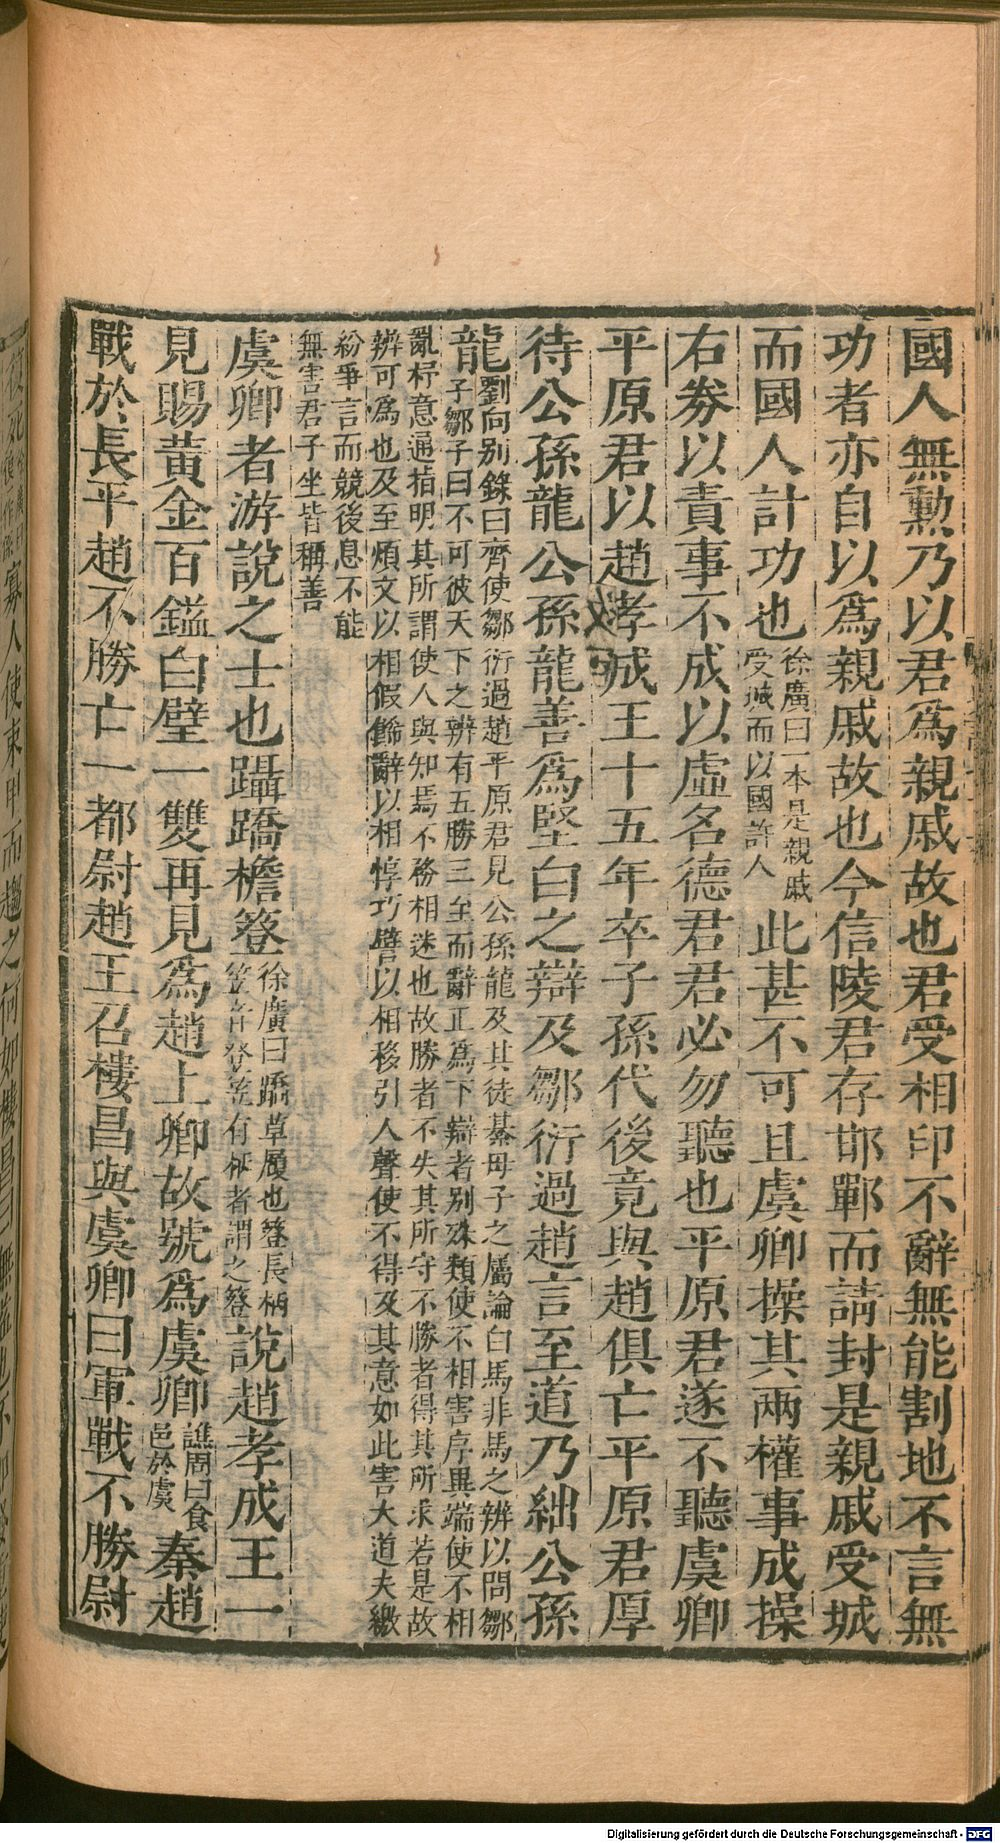 國人無勲乃以君爲親戚故也君受相印不辭無能割地不言無
功者亦自以爲親戚故也今信陵君存邯鄲而請封是親戚受城
而國人計功也徐廣曰一本是親戚受城而以國許人此甚不可且虞卿操其兩權事成操
右券以責事不成以虛名德君君必勿聽也平原君遂不聽虞卿
平原君以趙孝成王十五年卒子孫代後竟與趙俱亡平原君厚
待公孫龍公孫龍善爲堅白之辯及鄒衍過趙言至道乃絀公孫
龍劉向别錄曰齊使鄒衍過趙平原君見公孫龍及其徒綦毋子之屬論白馬非馬之辨以問鄒
子鄒子曰不可彼天下之辨有五勝三至而辭正爲下辯者别殊類使不相害序異端使不相
亂杼意通指明其所謂使人與知焉不務相迷也故勝者不失其所守不勝者得其所求若是故
辨可爲也及至煩文以相假飾辭以相惇巧譬以相移引人聲使不得及其意如此害大道夫繳
紛爭言而競後息不能
無害君子坐皆稱善
虞卿者游說之士也躡蹻檐簦徐廣曰蹻草履也簦長柄笠音登笠有柄者謂之簦說趙孝成王一
見賜黃金百鎰白璧一雙再見爲趙上卿故號爲虞卿譙周曰食邑於虞秦趙
戰於長平趙不勝亡一都尉趙王召樓昌與虞卿曰軍戰不勝尉
Digitalisierung gefördert durch die Deutsche Forschungsgemeinschaft - DFG